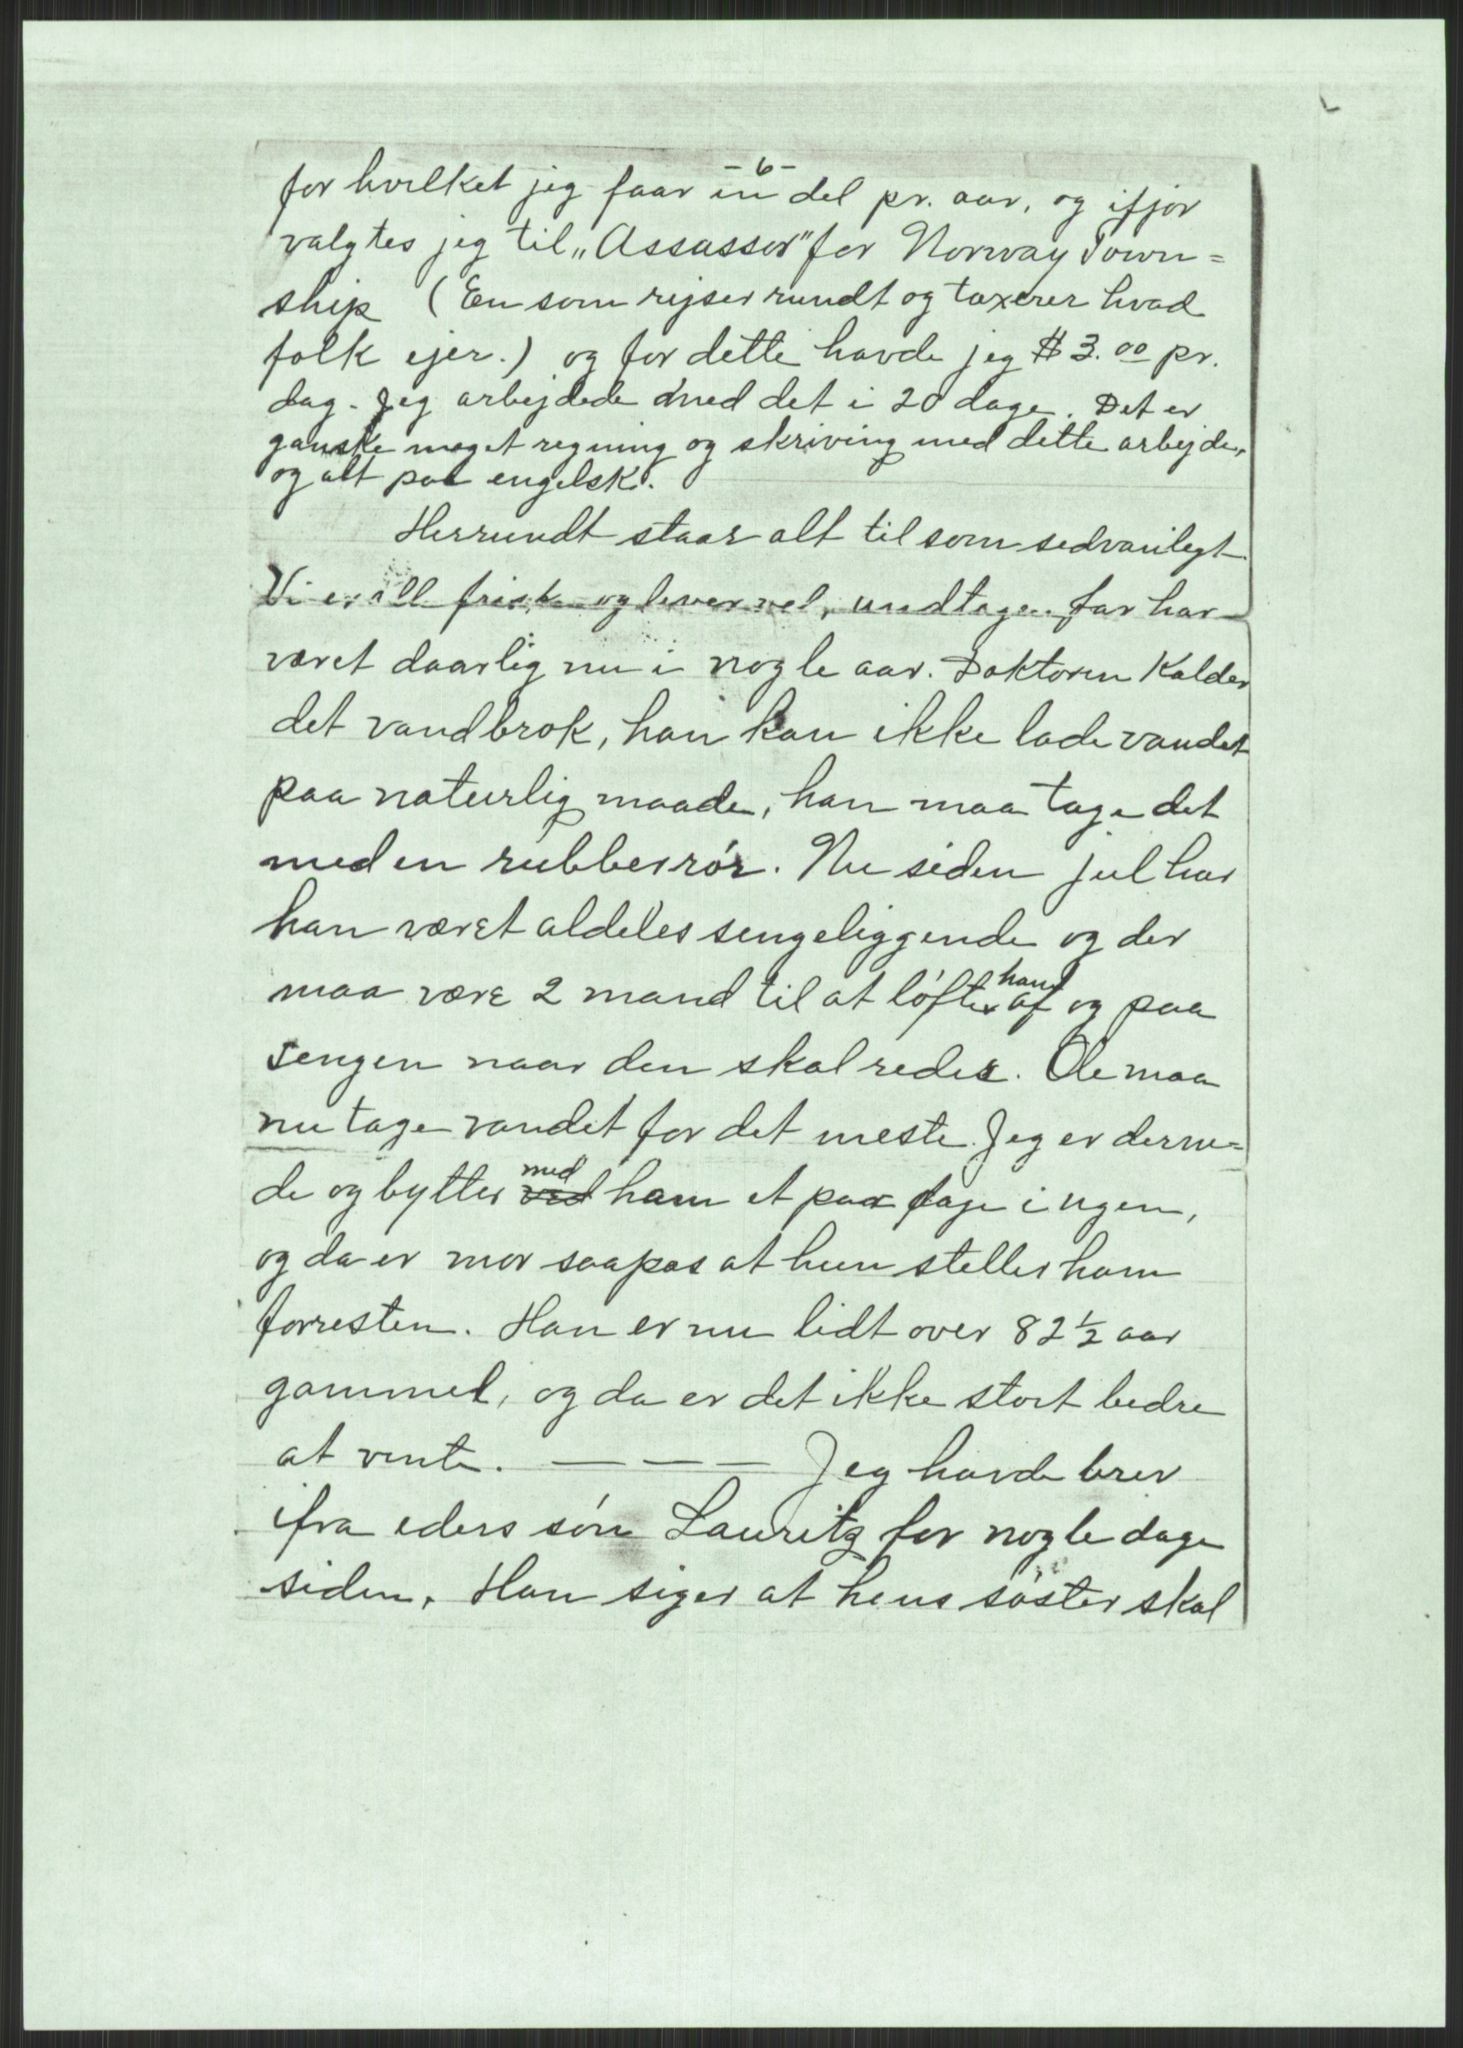 -6-
for hvilket jeg faar en del pr. aar, og ifjor
valgtes jeg til „Assassor" for Norway Town=
ship (En som rejser rundt og taxerer hvad
folk ejer.) og for dette havde jeg $3.00 pr.
dag. Jeg arbejdede med det i 20 dage. Det er
ganske meget regning og skriving med dette arbejde,
og alt paa engelsk.
Herrundt staar alt til som sedvanligt.
Vi er all friske og lever vel, undtagen far har
været daarlig nu i nogle aar. Doktoren Kalder
det vandbrok, han kan ikke lade vandet
paa naturlig maade, han maa tage det
med en rubberrór. Nu siden jul har
han været aldeles sengeliggende og der
maa være 2 mand til at lófte ham af og paa
sengen naar den skal redes. Ole maa
nu tage vandet for det meste. Jeg er derne=
de og bytter ved med ham et par dage i ugen,
og da er mor saapas at hun steller ham
forresten. Han er nu lidt over 82½ aar
gammel, og da er det ikke stort bedre
at vente. — — — Jeg havde brev
ifra eders són Lauritz for nogle dage
siden. Han siger at hans sóster skal